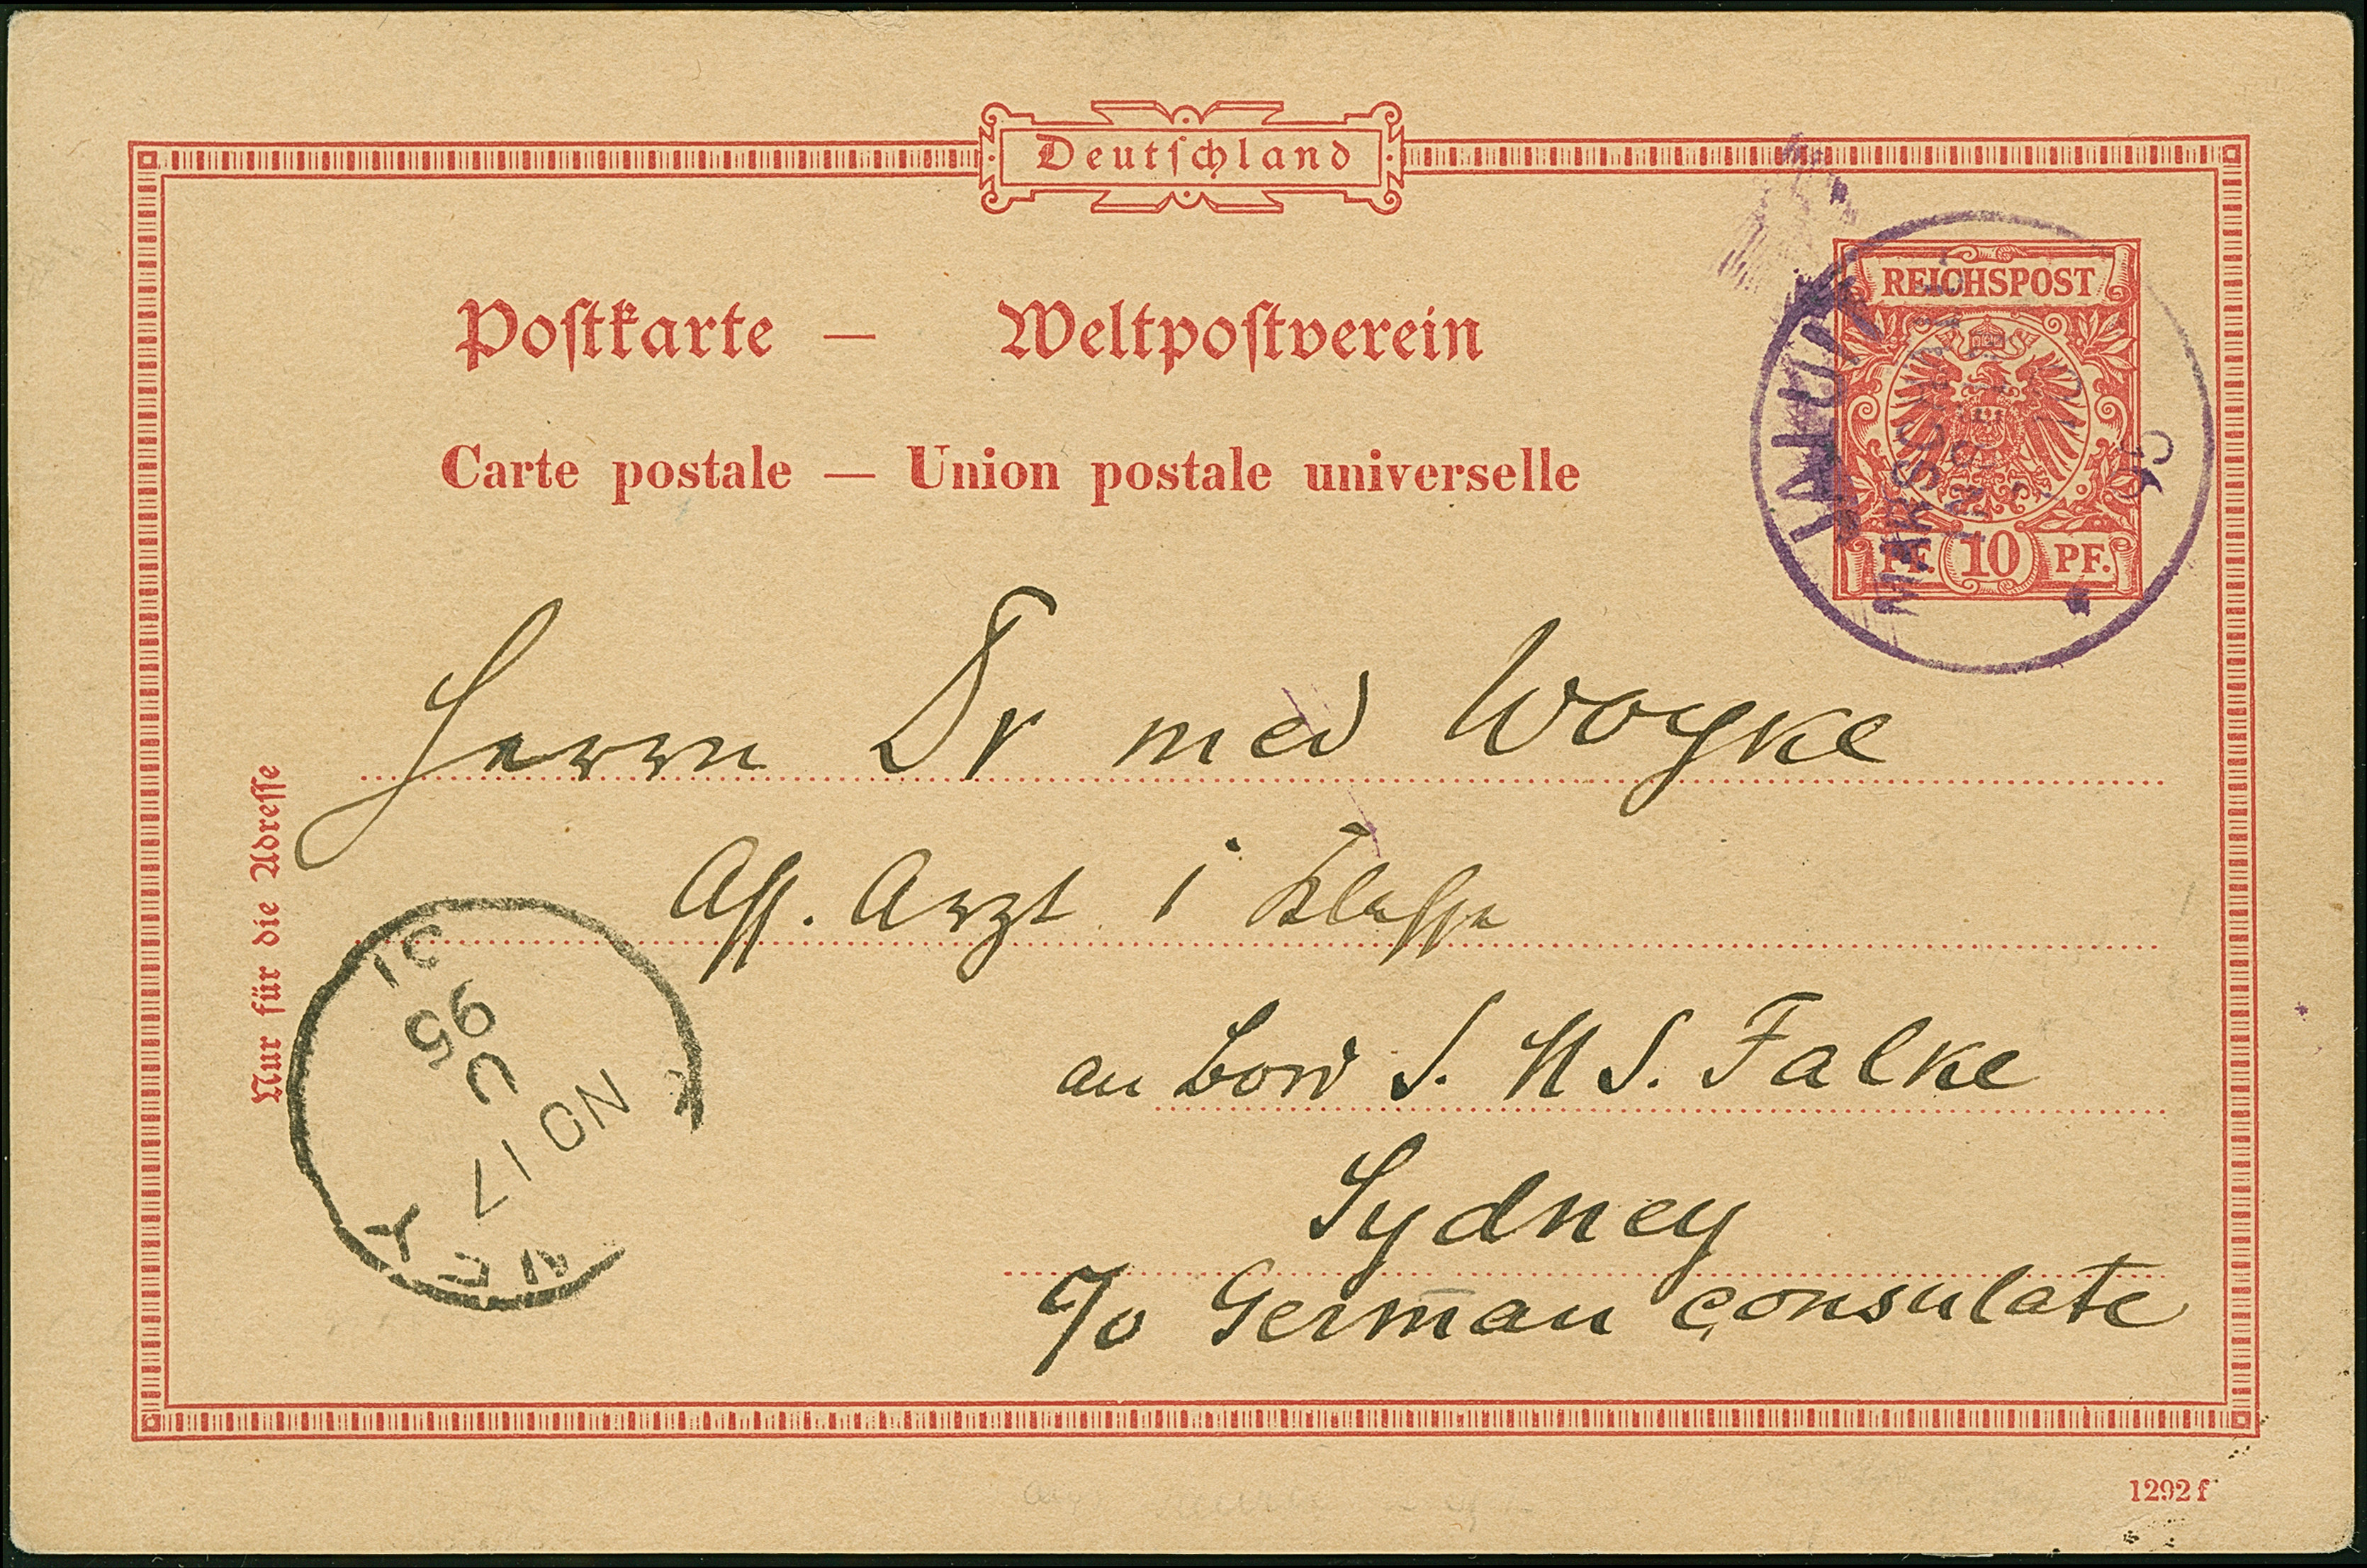 Deutschland
REICHSPOST
PF. 10 PF.
JALUIT
MARSCHALL-
INSELN
95
Postkarte — Weltpostverein
Carte postale — Union postale universelle
Herrn Dr med Woyke
Ass. Arzt i Klasse
an Bord S. M S. Falke
Sydney
c/o German consulate
Nur für die Adresse
NO 17
U
95
NEY
1292 f